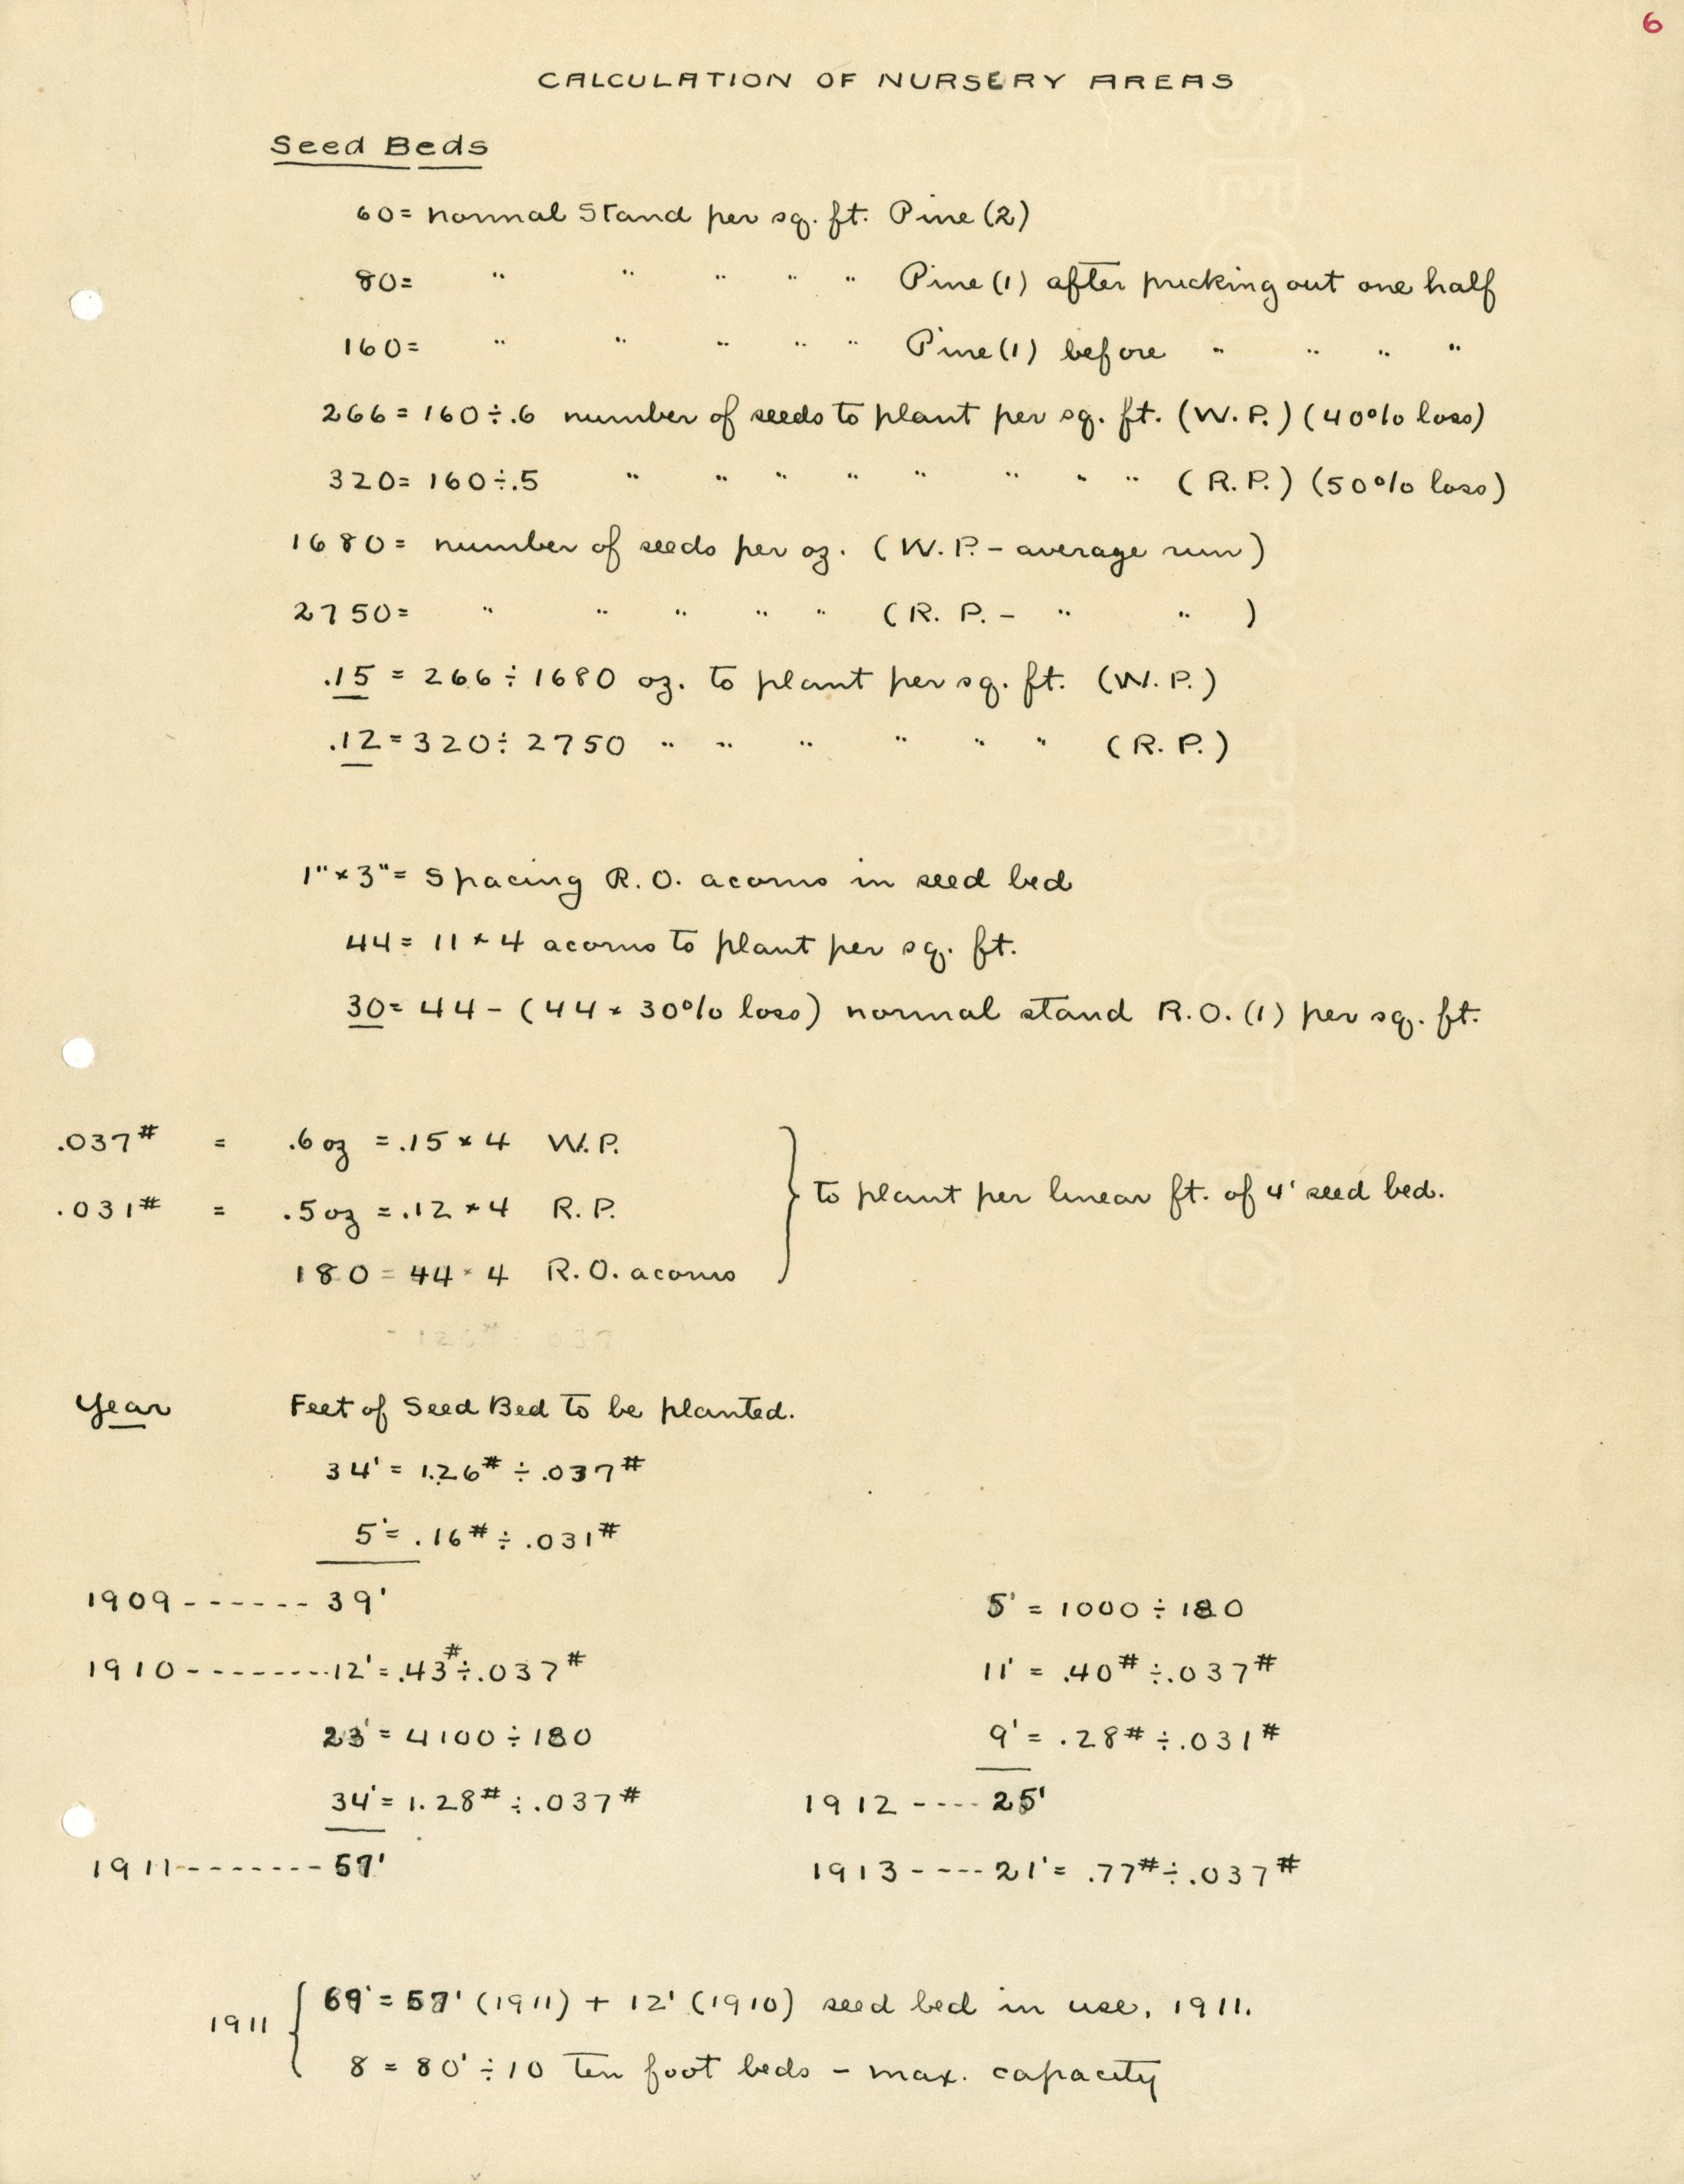 6
CALCULATION OF NURSERY AREAS
Seed Beds
60 = normal Stand per sq. ft. Pine (2)
80 = " " " " " Pine (1) after pricking out one half
160 = " " " " " Pine (1) before " " " "
266 = 160 ÷ .6 number of seeds to plant per sq. ft. (W. P.) (40% loss)
320 = 160 ÷ .5 " " " " " " " " (R. P.) (50% loss)
1680 = number of seeds per oz. (W. P. - average run)
2750 = " " " " " (R. P. - " " )
.15 = 266 ÷ 1680 oz. to plant per sq. ft. (W. P.)
.12 = 320 ÷ 2750 " " " " " " (R. P.)
1" × 3" = Spacing R. O. acorns in seed bed
44 = 11 × 4 acorns to plant per sq. ft.
30 = 44 - (44 × 30% loss) normal stand R. O. (1) per sq. ft.
.037# = .6 oz = .15 × 4 W. P.
.031# = .5 oz = .12 × 4 R. P.
180 = 44 × 4 R. O. acorns
to plant per linear ft. of 4' seed bed.
Year Feet of Seed Bed to be planted.
34' = 1.26# ÷ .037#
5' = .16# ÷ .031#
1909 ------ 39'
1910 -------- 12' = .43# ÷ .037#
23' = 4100 ÷ 180
34' = 1.28# ÷ .037#
1911 ------- 57'
5' = 1000 ÷ 180
11' = .40# ÷ .037#
9' = .28# ÷ .031#
1912 ---- 25'
1913 ---- 21' = .77# ÷ .037#
1911
69' = 57' (1911) + 12' (1910) seed bed in use, 1911.
8 = 80' ÷ 10 ten foot beds - max. capacity